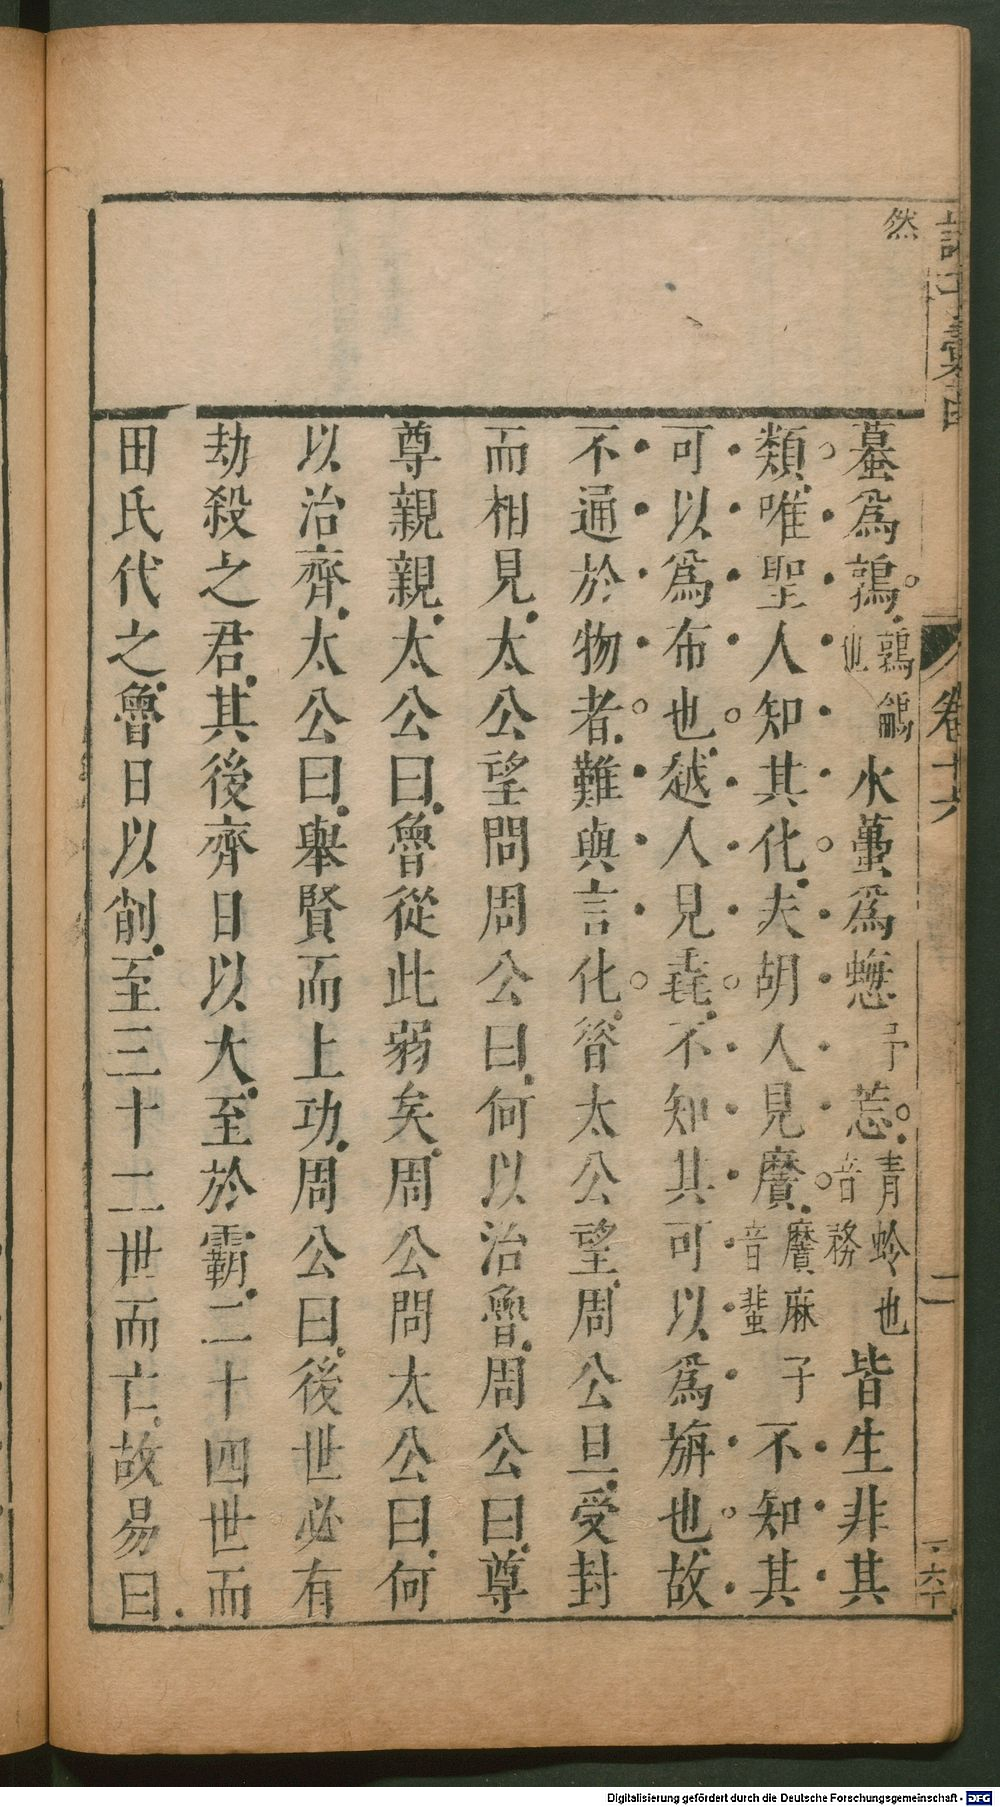 然
蟇爲鶉鶉鵮也水蠆爲蟌予莣青蛉也音務皆生非其
類唯聖人知其化夫胡人見黂黂麻子音蜚不知其
可以爲布也越人見毳不知其可以爲旃也故
不通於物者難與言化昝太公望周公旦受封
而相見太公望問周公曰何以治魯周公曰尊
尊親親太公曰魯從此弱矣周公問太公曰何
以治齊太公曰舉賢而上功周公曰後世必有
劫殺之君其後齊日以大至於霸二十四世而
田氏代之魯日以削至三十二世而亡故易曰
卷十六
二
Digitalisierung gefördert durch die Deutsche Forschungsgemeinschaft - DFG